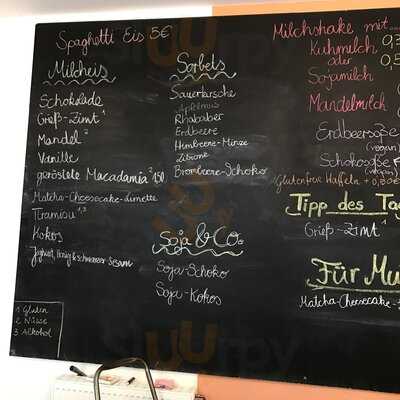 Spaghetti Eis 5€
Milcheis
Schokolade
Grieß-Zimt ¹
Mandel ²
Vanille
geröstete Macadamia ² 1,50
Matcha-Cheesecake-Limette
Tiramisu ¹,³
Kokos
Joghurt, Honig & schwarzer Sesam
1 Gluten
2 Nüsse
3 Alkohol
Sorbets
Sauerkirsche
Apfelmus
Rhababer
Erdbeere
Himbeere-Minze
Zitrone
Brombeere-Schoko
Soja & Co.
Soja-Schoko
Soja-Kokos
Milchshake mit...
Kuhmilch 0,3
oder 0,5
Sojamilch
Mandelmilch
Erdbeersoße
(vegan)
Schokosoße
(vegan)
Glutenfreie Waffeln + 0,30€
Tipp des Ta
Grieß-Zimt ¹
Für Mu
Matcha-Cheesecake-